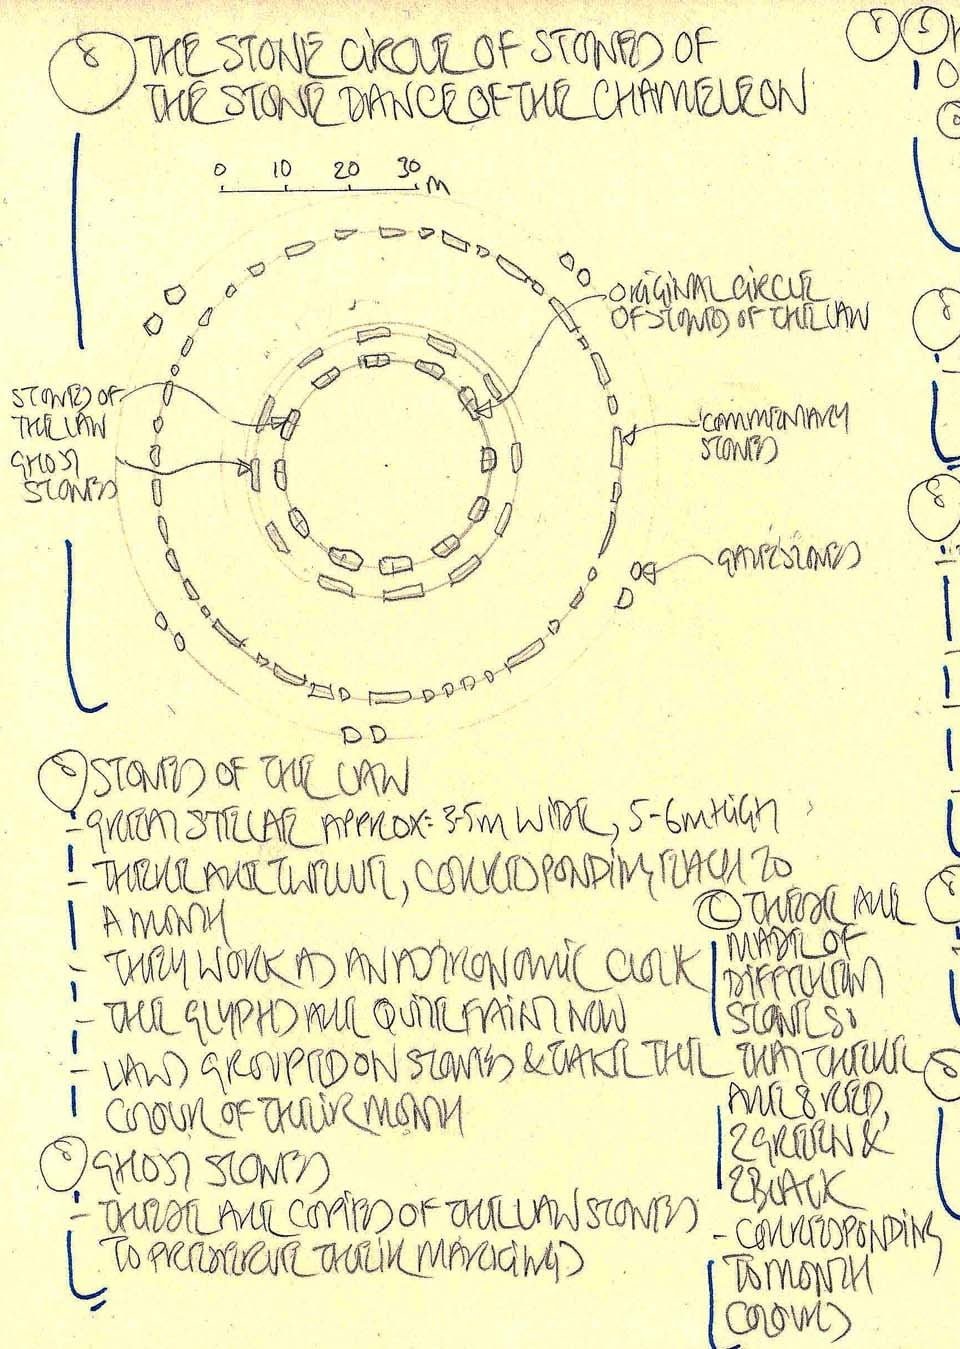 8 THE STONE CIRCLE OF STONES OF
THE STONE DANCE OF THE CHAMELEON
0 10 20 30 M
ORIGINAL CIRCLE
OF STONES OF THE LAW
STONES OF
THE LAW
GHOST
STONES
COMMENTARY
STONES
GATESTONES
STONES OF THE LAW
- GREAT STELAE APPROX: 3-5m WIDE, 5-6m HIGH
- THERE ARE TWELVE, CORRESPONDING EACH TO
A MONTH
- THEY WORK AS AN ASTRONOMIC CLOCK
- THE GLYPHS ARE QUITE FAINT NOW
- LAWS GROUPED ON STONES & TAKE THE
COLOUR OF THEIR MONTH
GHOST STONES
- THESE ARE COPIES OF THE LAW STONES
TO PRESERVE THEIR MARKINGS
THESE ARE
MADE OF
DIFFERENT
STONE SO
THAT THERE
ARE 8 RED,
2 GREEN &
2 BLACK
- CORRESPONDING
TO MONTH
COLOURS